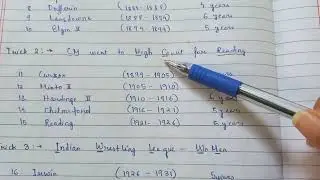 8 Dufferin (1884 - 1888) 4 years
9 Lansdowne (1888 - 1894) 6 years
10 Elgin II (1894 - 1899) 5 years
Trick 2:- CM went to High Court for Reading
11 Curzon (1899 - 1905)
12 Minto II (1905 - 1910)
13 Hardinge II (1910 - 1916) 6 years
14 Chelmsford (1916 - 1921) 5 years
15 Reading (1921 - 1926) 5 years
Trick 3:- Indian Wrestling League - WoMen
16 Irwin (1926 - 1931) 5 years